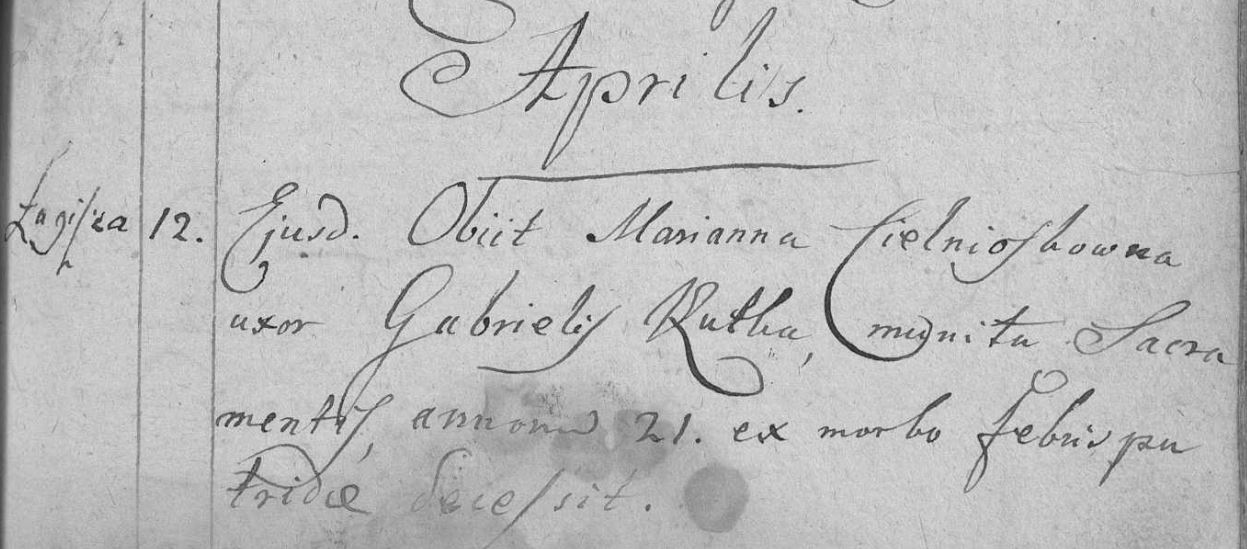 Aprilis.
Łagisza 12. Ejusd. Obiit Marianna Cielnioskowna
uxor Gabrielis Kutka, munita Sacra
mentis, annorum 21. ex morbo febris pu
tridæ decessit.